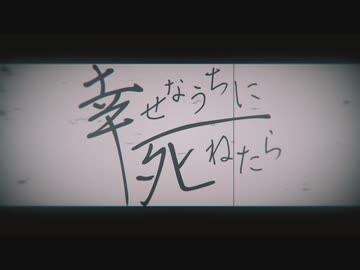 幸せなうちに
死ねたら